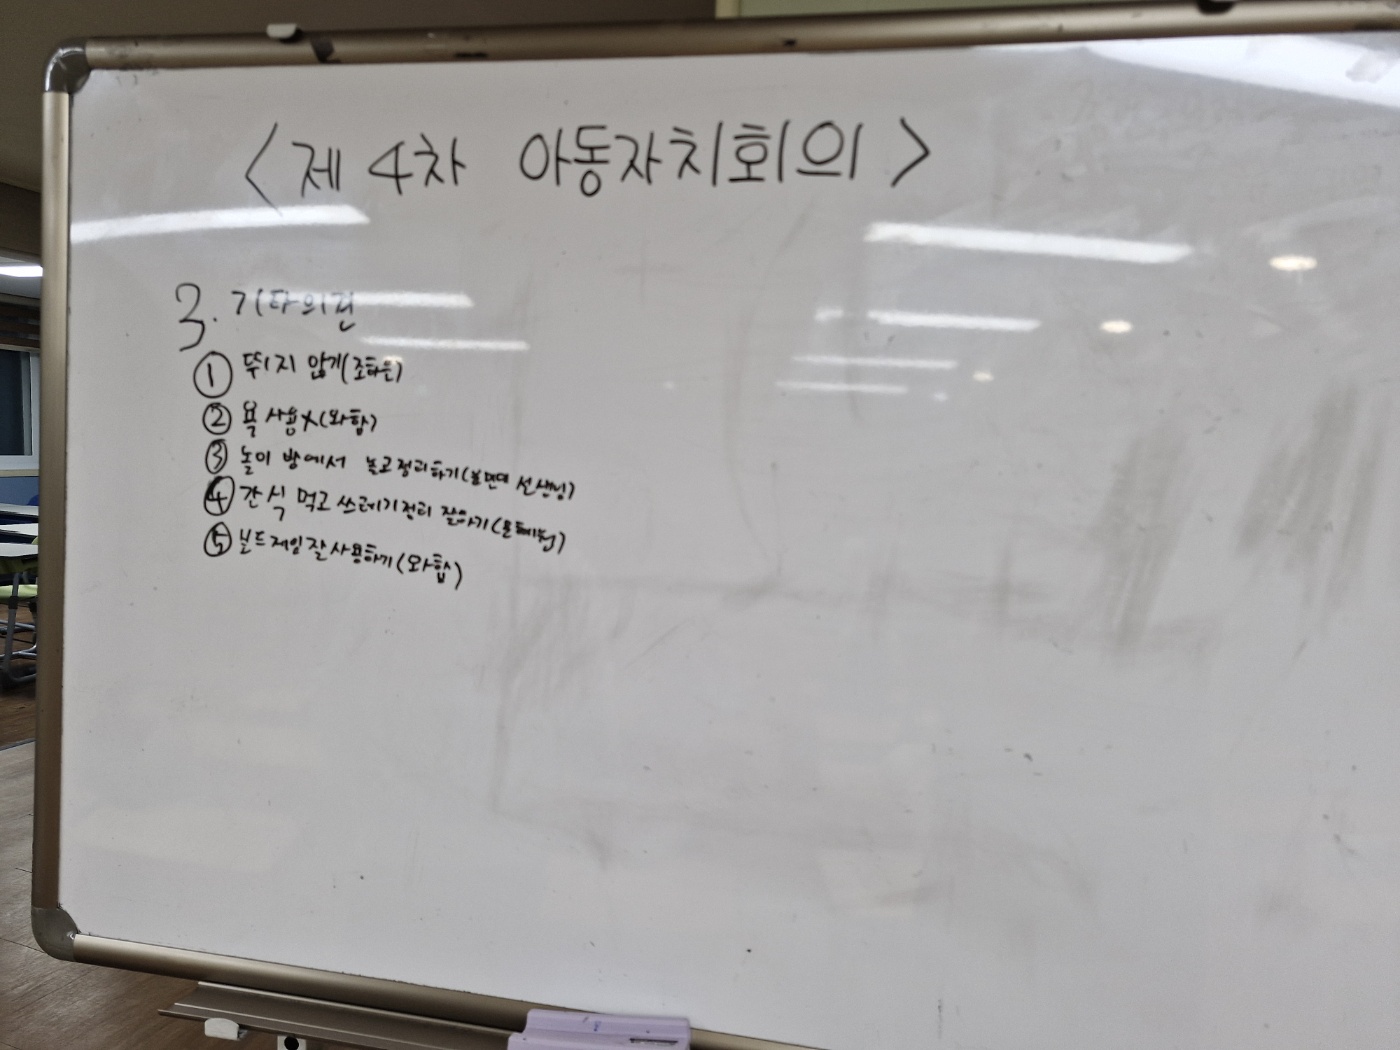 < 제 4차 아동자치회의 >
3. 기타의견
① 뛰지 않기(조하른)
② 욕 사용X(와합)
③ 놀이 방에서 놀고정리하기( 선생님)
④ 간식 먹고 쓰레기정리 잘하기
⑤ 보드게임잘사용하기(와합)